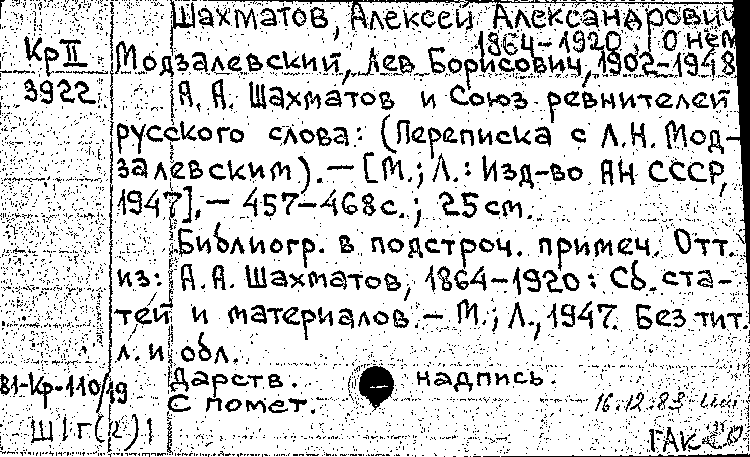 Шахматов, Алексей Александрович
1864-1920, О нем
Кр II
3922
Модзалевский, Лев Борисович, 1902-1948
А. А. Шахматов и Союз ревнителей
русского слова: (Переписка с Л.Н. Мод-
залевским). — [М.; Л.: Изд-во АН СССР,
1947]. — 457-468 с.; 25 см.
Библиогр. в подстроч. примеч. Отт.
из: А. А. Шахматов, 1864-1920: Сб. ста-
тей и материалов. — М.; Л., 1947. Без тит.
л. и обл.
81-Кр-110/19
Дарств. надпись.
С помет.
16.12.83
Ш1г(2)1
ГАК